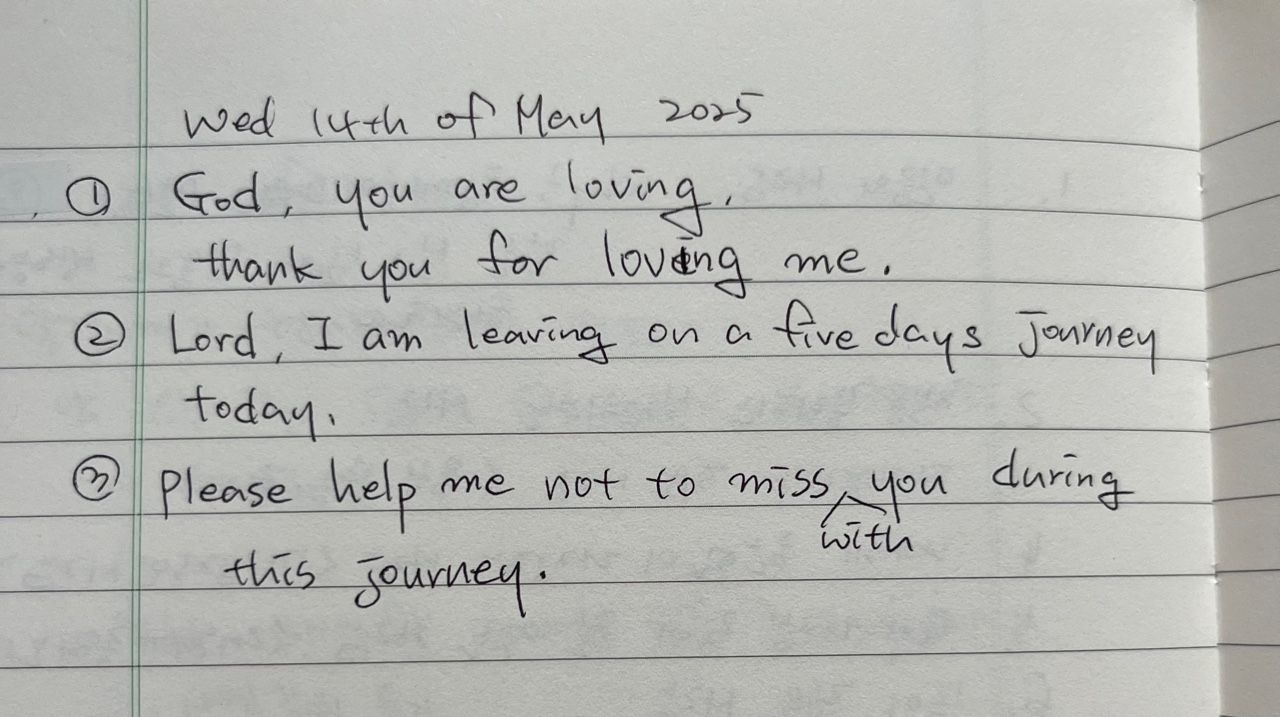 Wed 14th of May 2025
① God, you are loving,
thank you for loving me.
② Lord, I am leaving on a five days journey
today.
③ please help me not to miss with you during
this journey.